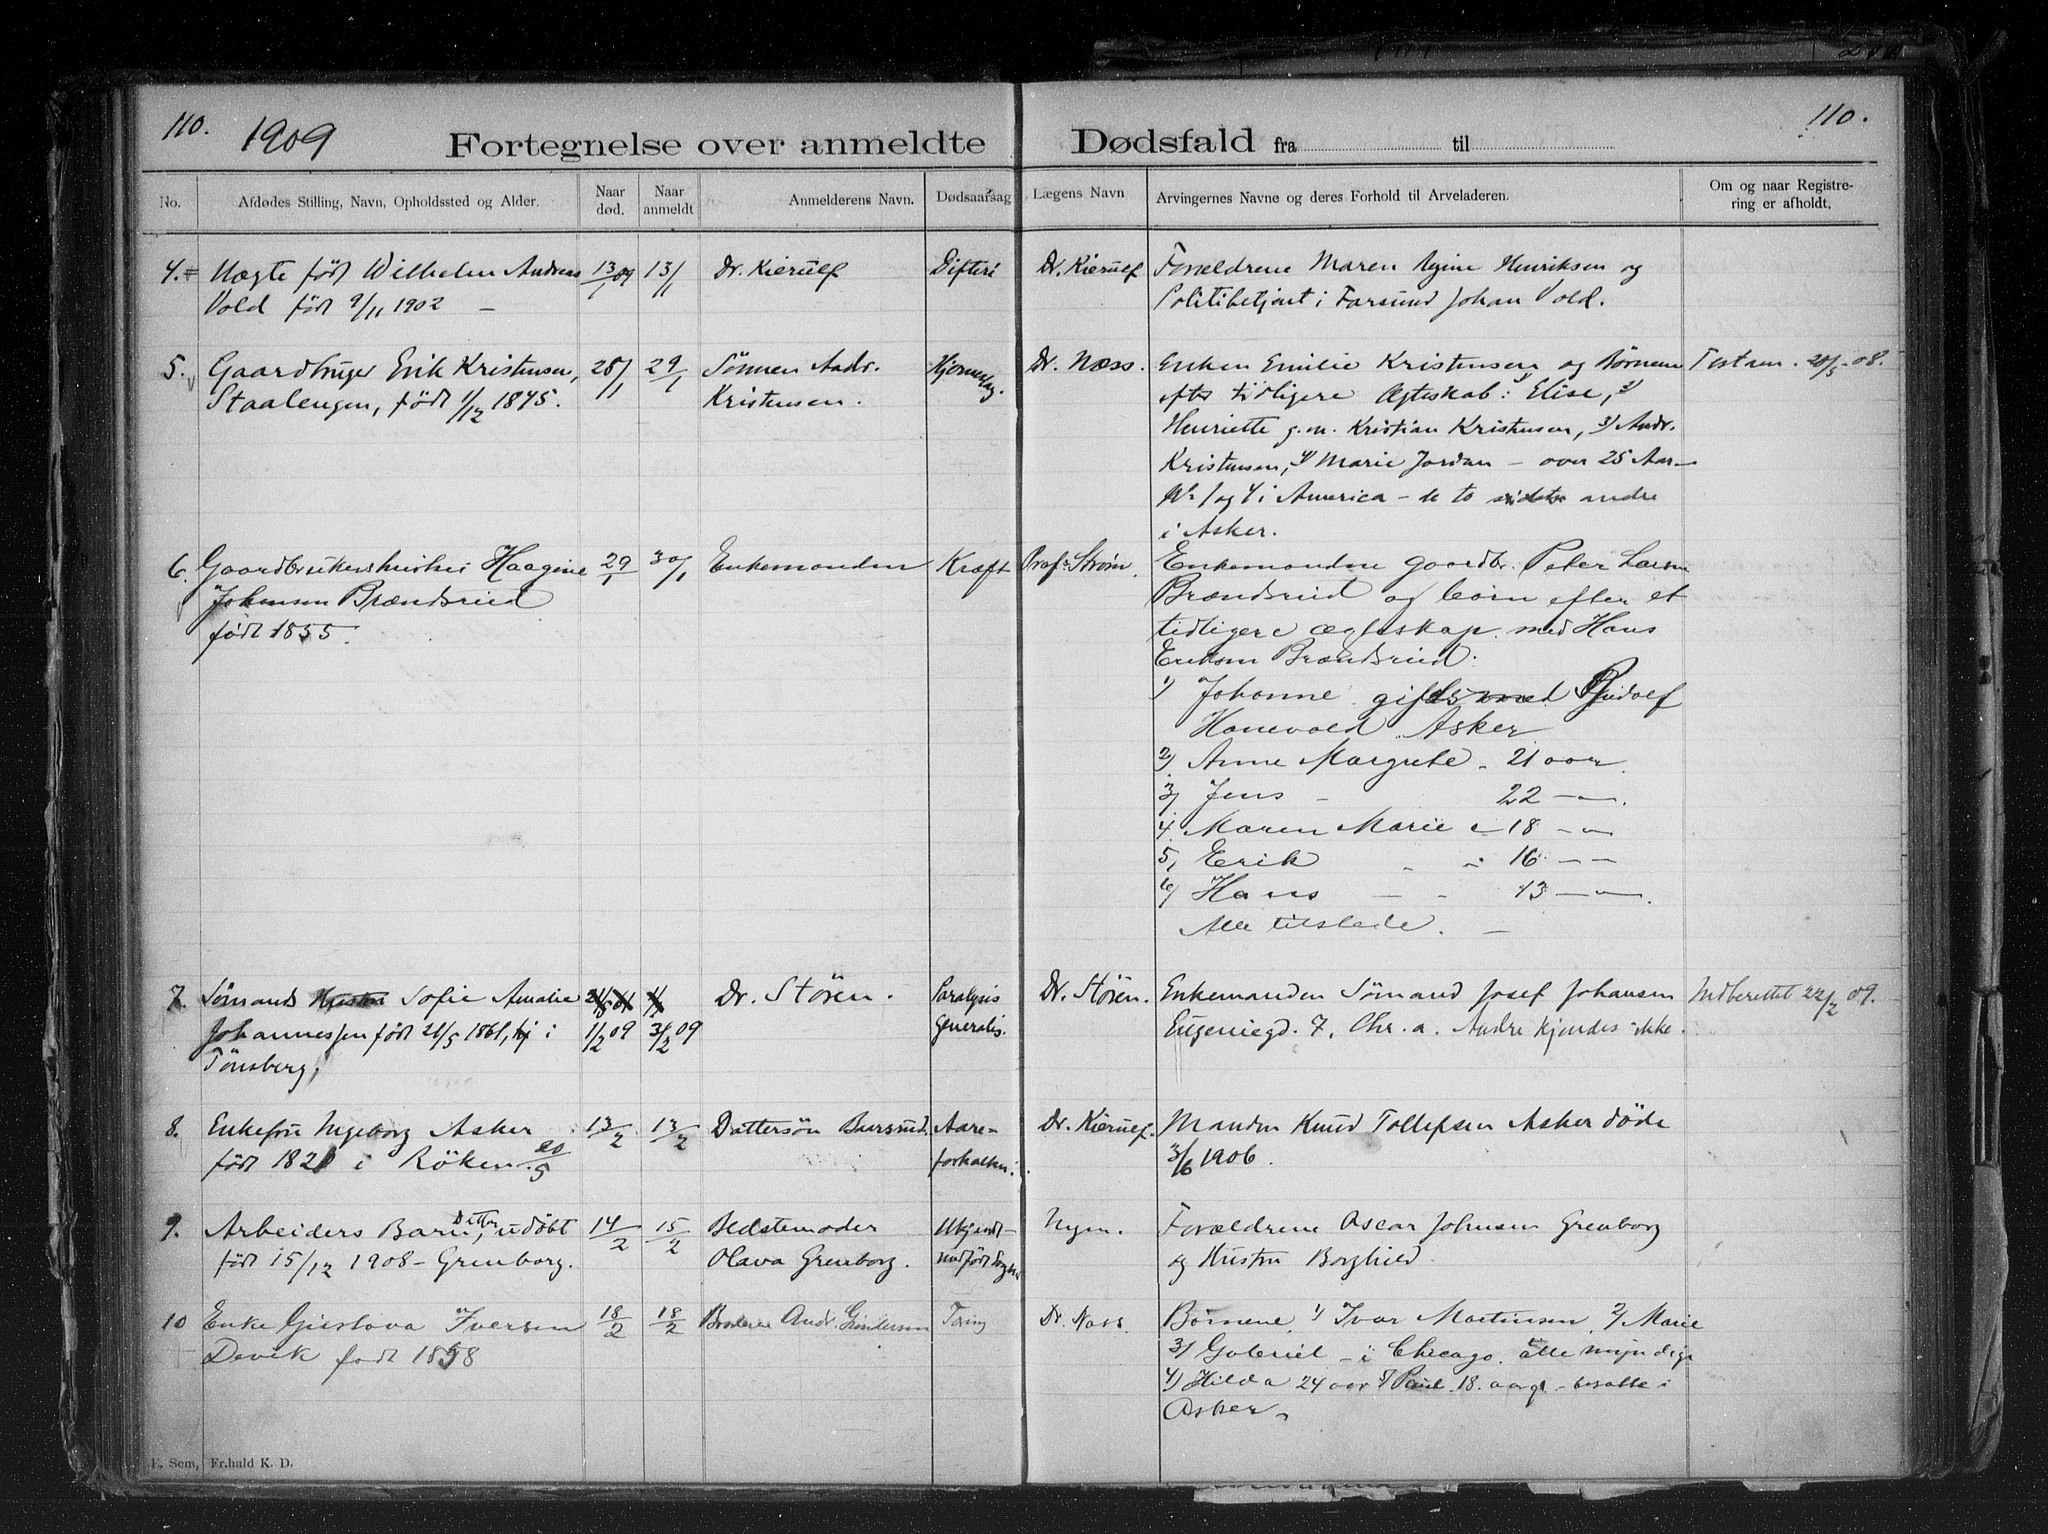 110.
1909
Fortegnelse over anmeldte Dødsfald fra til
110.
No.
Afdødes Stilling, Navn, Opholdssted og Alder.
Naar død.
Naar anmeldt
Anmelderens Navn.
Dødsaarsag
Lægens Navn
Arvingernes Navne og deres Forhold til Arveladeren.
Om og naar Registre-
ring er afholdt.
4. Uægte født Wilhelm Andreas 13/1 09 13/1 Dr. Kierulf Difteri Dr. Kierulf Forældrene Maren Henriksen og
Vold født 9/11 1902 — Politibetjent i Farsund Johan Vold.
5. Gaardbruger Erik Kristensen, 28/1 29/1 Sønnen Andr. Dr. Næss. Enken Emilie Kristensen og Børnene Testam. 20/5-08.
Staalengen, født 1/12 1845. Kristensen. tidligere Ægteskab: 1) Elise, 2)
Henriette g.m. Kristian Kristensen, 3) Andr.
Kristensen, 4) Marie Jordan — over 25 Aar —
Nr 1 og 4 i America — de to andre
i Asker.
6. Haagine 29/1 30/1 Enkemanden Kræft Prof. Strøm. Enkemanden gaardbr. Peter Larsen
Johnsen Brændsrud Brændsrud og børn efter et
født 1855. tidligere ægteskap med Hans
Eriksen Brændsrud:
1) Johanne gift med Rudolf
Hanevold Asker
2) Anne Margrete - 21 aar.
3) Jens - 22 —"—.
4. Maren Marie - 18 —"—
5, Erik - 16 — —
6) Hans - 13 —"—.
Alle tilstede. —
7. Sømands Sofie Amalie Dr. Stören. Paralysis Dr. Stören. Enkemanden Sømand Josef Johansen Indberettet 22/2 09.
Johannessen født 21/5 1861, i 1/2 09 3/2 09 Generalis. Eugeniegd. 7, Chr.a. Andre kjendes ikke.
Tönsberg,
8. Enkefru Ingeborg Asker 13/2 13/2 Dattersön Aare- Dr. Kierulf. Manden Knud Tollefsen Asker døde
født 1821 i Röken. 20/5 forkalkn. 3/6 1906.
9. Arbeiders Barn, Datter, udöbt 14/2 15/2 Bedstemoder Ukjendt - Ingen. Forældrene Oscar Johnsen Grenborg
født 15/12 1908 - Grenborg. Olava Grenborg. og Hustru Borghild.
10 Enke Gustava Iversen 18/2 18/2 Broderen Andr. Gundersen Tæring Dr. Næss. Børnene 1) Ivar Martinsen, 2) Marie
Devik født 1858 3) Gabriel - i Chicago. alle myndige
4) Hilda 24 aar 5) Paul 18. aar - bosatte i
Asker.
F. Sem, Fr.hald K. D.